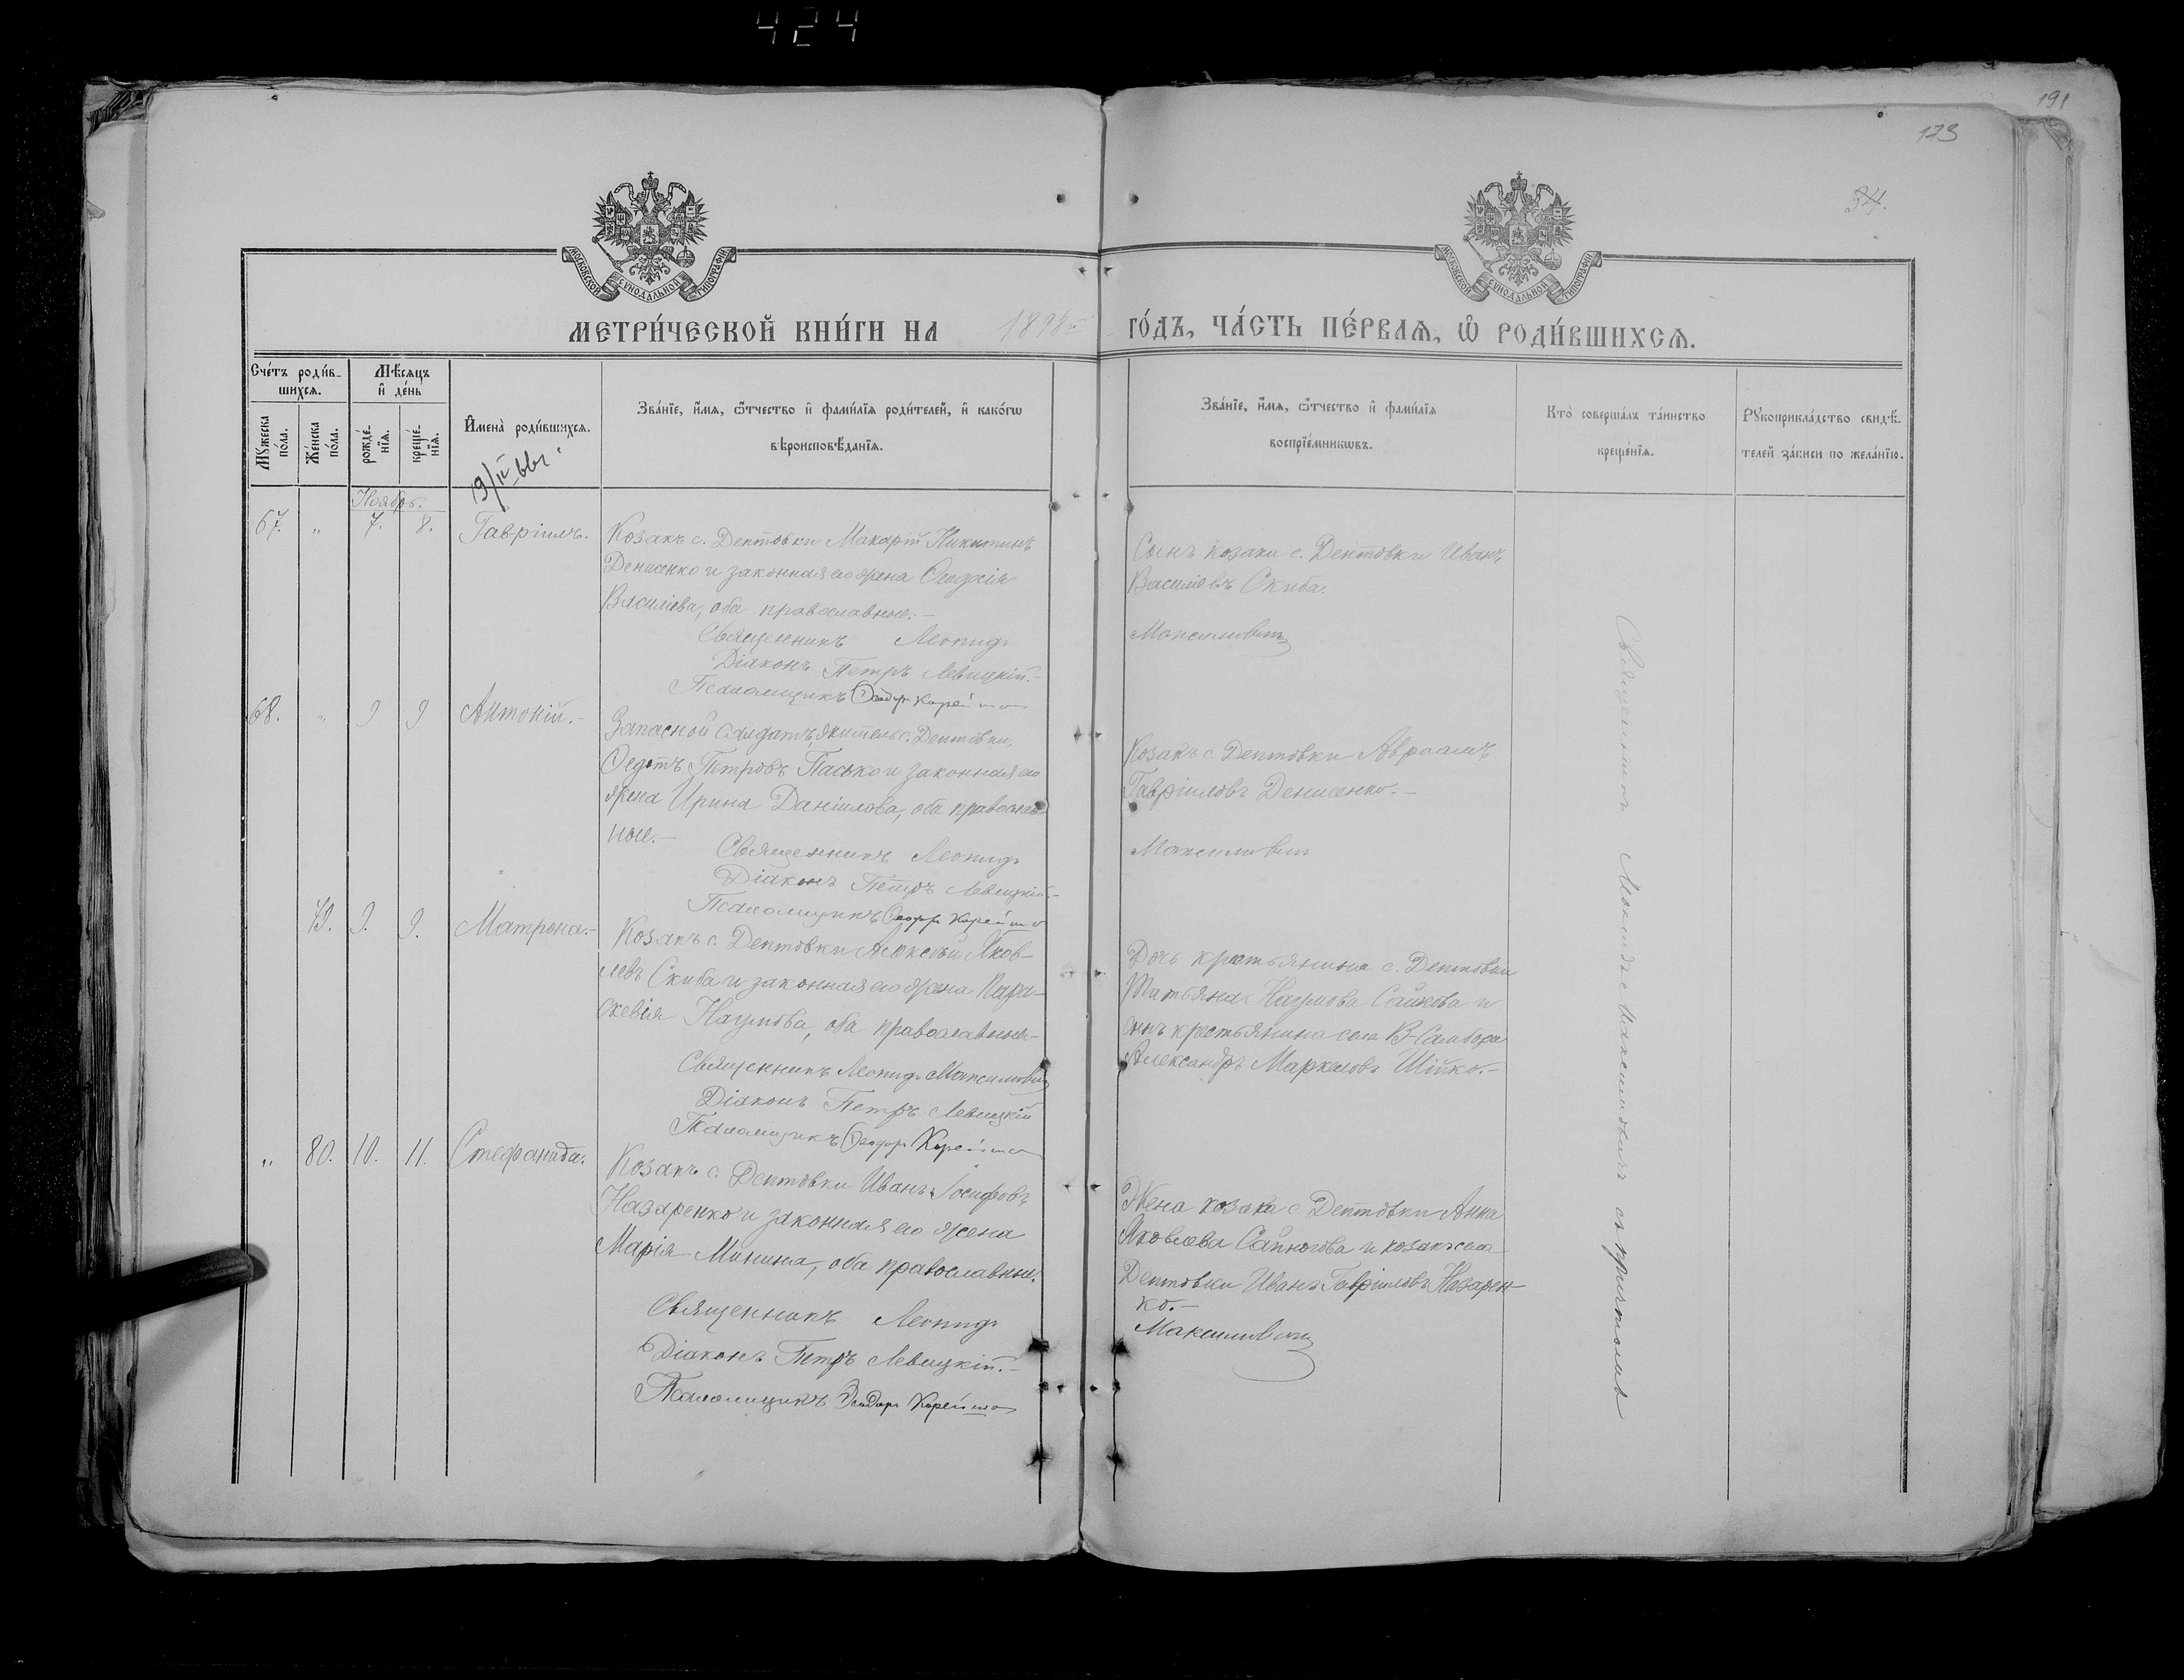 424
191
173
34.
МОСКОВСКОЙ СѴНОДАЛЬНОЙ ТИПОГРАФІИ
МОСКОВСКОЙ СѴНОДАЛЬНОЙ ТИПОГРАФІИ
МЕТРИ́ЧЕСКОЙ КНИ́ГИ НА 1898й ГО́ДЪ, ЧА́СТЬ ПЕ́РВАѦ, Ѽ РОДИ́ВШИХСѦ.
Сче́тъ роди́вшихсѧ.
Мꙋжеска по́ла.
Же́нска по́ла.
Мѣ́сѧцъ и҆ де́нь
рожде́нїѧ.
креще́нїѧ.
И҆мена̀ роди́вшихсѧ.
Зва́нїе, и҆́мѧ, ѻ҆́тчество и҆ фами́лїѧ роди́телей, и҆ како́гѡ
вѣроисповѣ́данїѧ.
Зва́нїе, и҆́мѧ, ѻ҆́тчество и҆ фами́лїѧ
воспрїе́мникѡвъ.
Кто̀ соверша́лъ та́инство
креще́нїѧ.
Рꙋкоприкла́дство свидѣ́-
телей за́писи по жела́нїю.
Ноябрь.
67. „ 7. 8. Гавріилъ.
Козакъ с. Дептовки Макарій Никитинъ
Денисенко и законная его жена Ѳеодосія
Василіева, оба православные.—
Священникъ Леонидъ Максимовичъ
Діаконъ Петръ Левицкій.—
Псаломщикъ Ѳеодоръ Корейша
Сынъ козака с. Дептовки Иванъ
Василіевъ Скиба.
68. „ 9 9 Антоній.—
Запасной солдатъ, житель с. Дептовки,
Ѳедотъ Петровъ Пасько и законная его
жена Ирина Даніилова, оба православ-
ные.—
Священникъ Леонидъ Максимовичъ
Діаконъ Петръ Левицкій.—
Псаломщикъ Ѳеодоръ Корейша
Козакъ с. Дептовки Авраамъ
Гавріиловъ Денисенко.—
79. 9. 9. Матрона.—
Козакъ с. Дептовки Алексѣй Яков-
левъ Скиба и законная его жена Пара-
скевія Наумова, оба православные.—
Священникъ Леонидъ Максимовичъ
Діаконъ Петръ Левицкій
Псаломщикъ Ѳеодоръ Корейша
Дочь крестьянина с. Дептовки
Татьяна Наумова и
сынъ крестьянина села В-Самбора
Александръ Маркеловъ
„ 80. 10. 11. Стефанида.
Козакъ с. Дептовки Иванъ Іосифовъ
Назаренко и законная его жена
Марія Минина, оба православные.
Священникъ Леонидъ Максимовичъ
Діаконъ Петръ Левицкій.—
Псаломщикъ Ѳеодоръ Корейша
Жена козака с. Дептовки Анна
Яковлева и козакъ села
Дептовки Иванъ Гавріиловъ Назарен-
ко.—
Священникъ Леонидъ Максимовичъ съ причтомъ